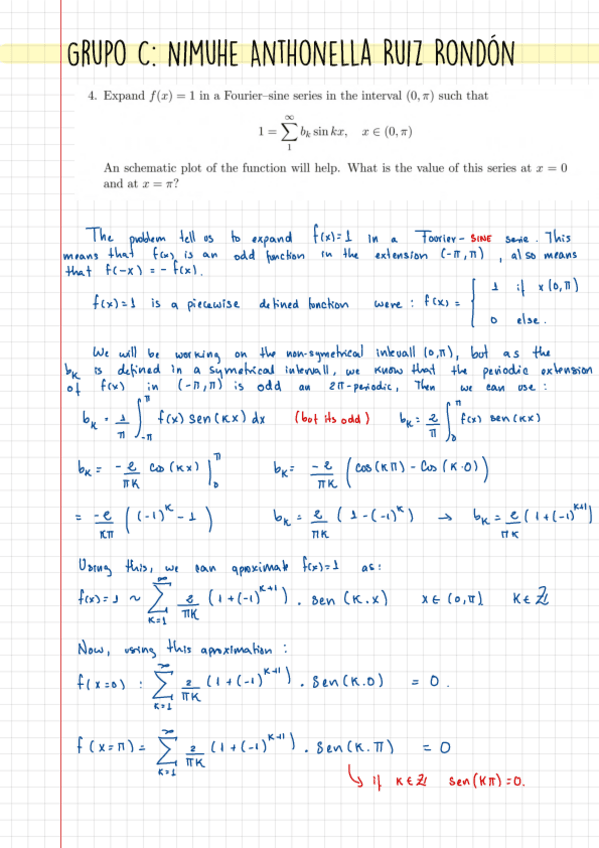 GRUPO C: NIMUHE ANTHONELLA RUIZ RONDÓN
4. Expand f(x) = 1 in a Fourier–sine series in the interval (0, π) such that
1 = ∑_1^∞ b_k sin kx, x ∈ (0, π)
An schematic plot of the function will help. What is the value of this series at x = 0
and at x = π?
The problem tell us to expand f(x)=1 in a Foorier- SINE serie. This
means that f(x) is an odd function in the extension (-π,π), also means
that f(-x) = - f(x).
f(x)=1 is a piecewise defined function were : f(x) = { 1 if x (0,π)
0 else.
We will be working on the non-symetrical intevall (0,π), but as the
b_k is defined in a symetrical intervall, we know that the periodic extension
of f(x) in (-π,π) is odd an 2π-periodic, Then we can use :
b_k = 1/π ∫_-π^π f(x) sen(kx) dx (but its odd) b_k = 2/π ∫_0^π f(x) sen(kx)
b_k = -2/πk cos(kx) |_0^π b_k = -2/πk (cos(kπ) - cos(k·0))
= -2/kπ ((-1)^k - 1) b_k = 2/πk (1-(-1)^k) → b_k = 2/πk (1+(-1)^k+1)
Using this, we can aproximate f(x)=1 as:
f(x)=1 ~ ∑_k=1^∞ 2/πk (1+(-1)^k+1) . sen (k.x) x∈ (0,π) k∈ ℤ
Now, using this aproximation :
f(x=0) : ∑_k=1^∞ 2/πk (1+(-1)^k+1) . Sen(k.0) = 0.
f(x=π) = ∑_k=1^∞ 2/πk (1+(-1)^k+1) . Sen(k.π) = 0
↳ if k∈ℤ sen(kπ)=0.